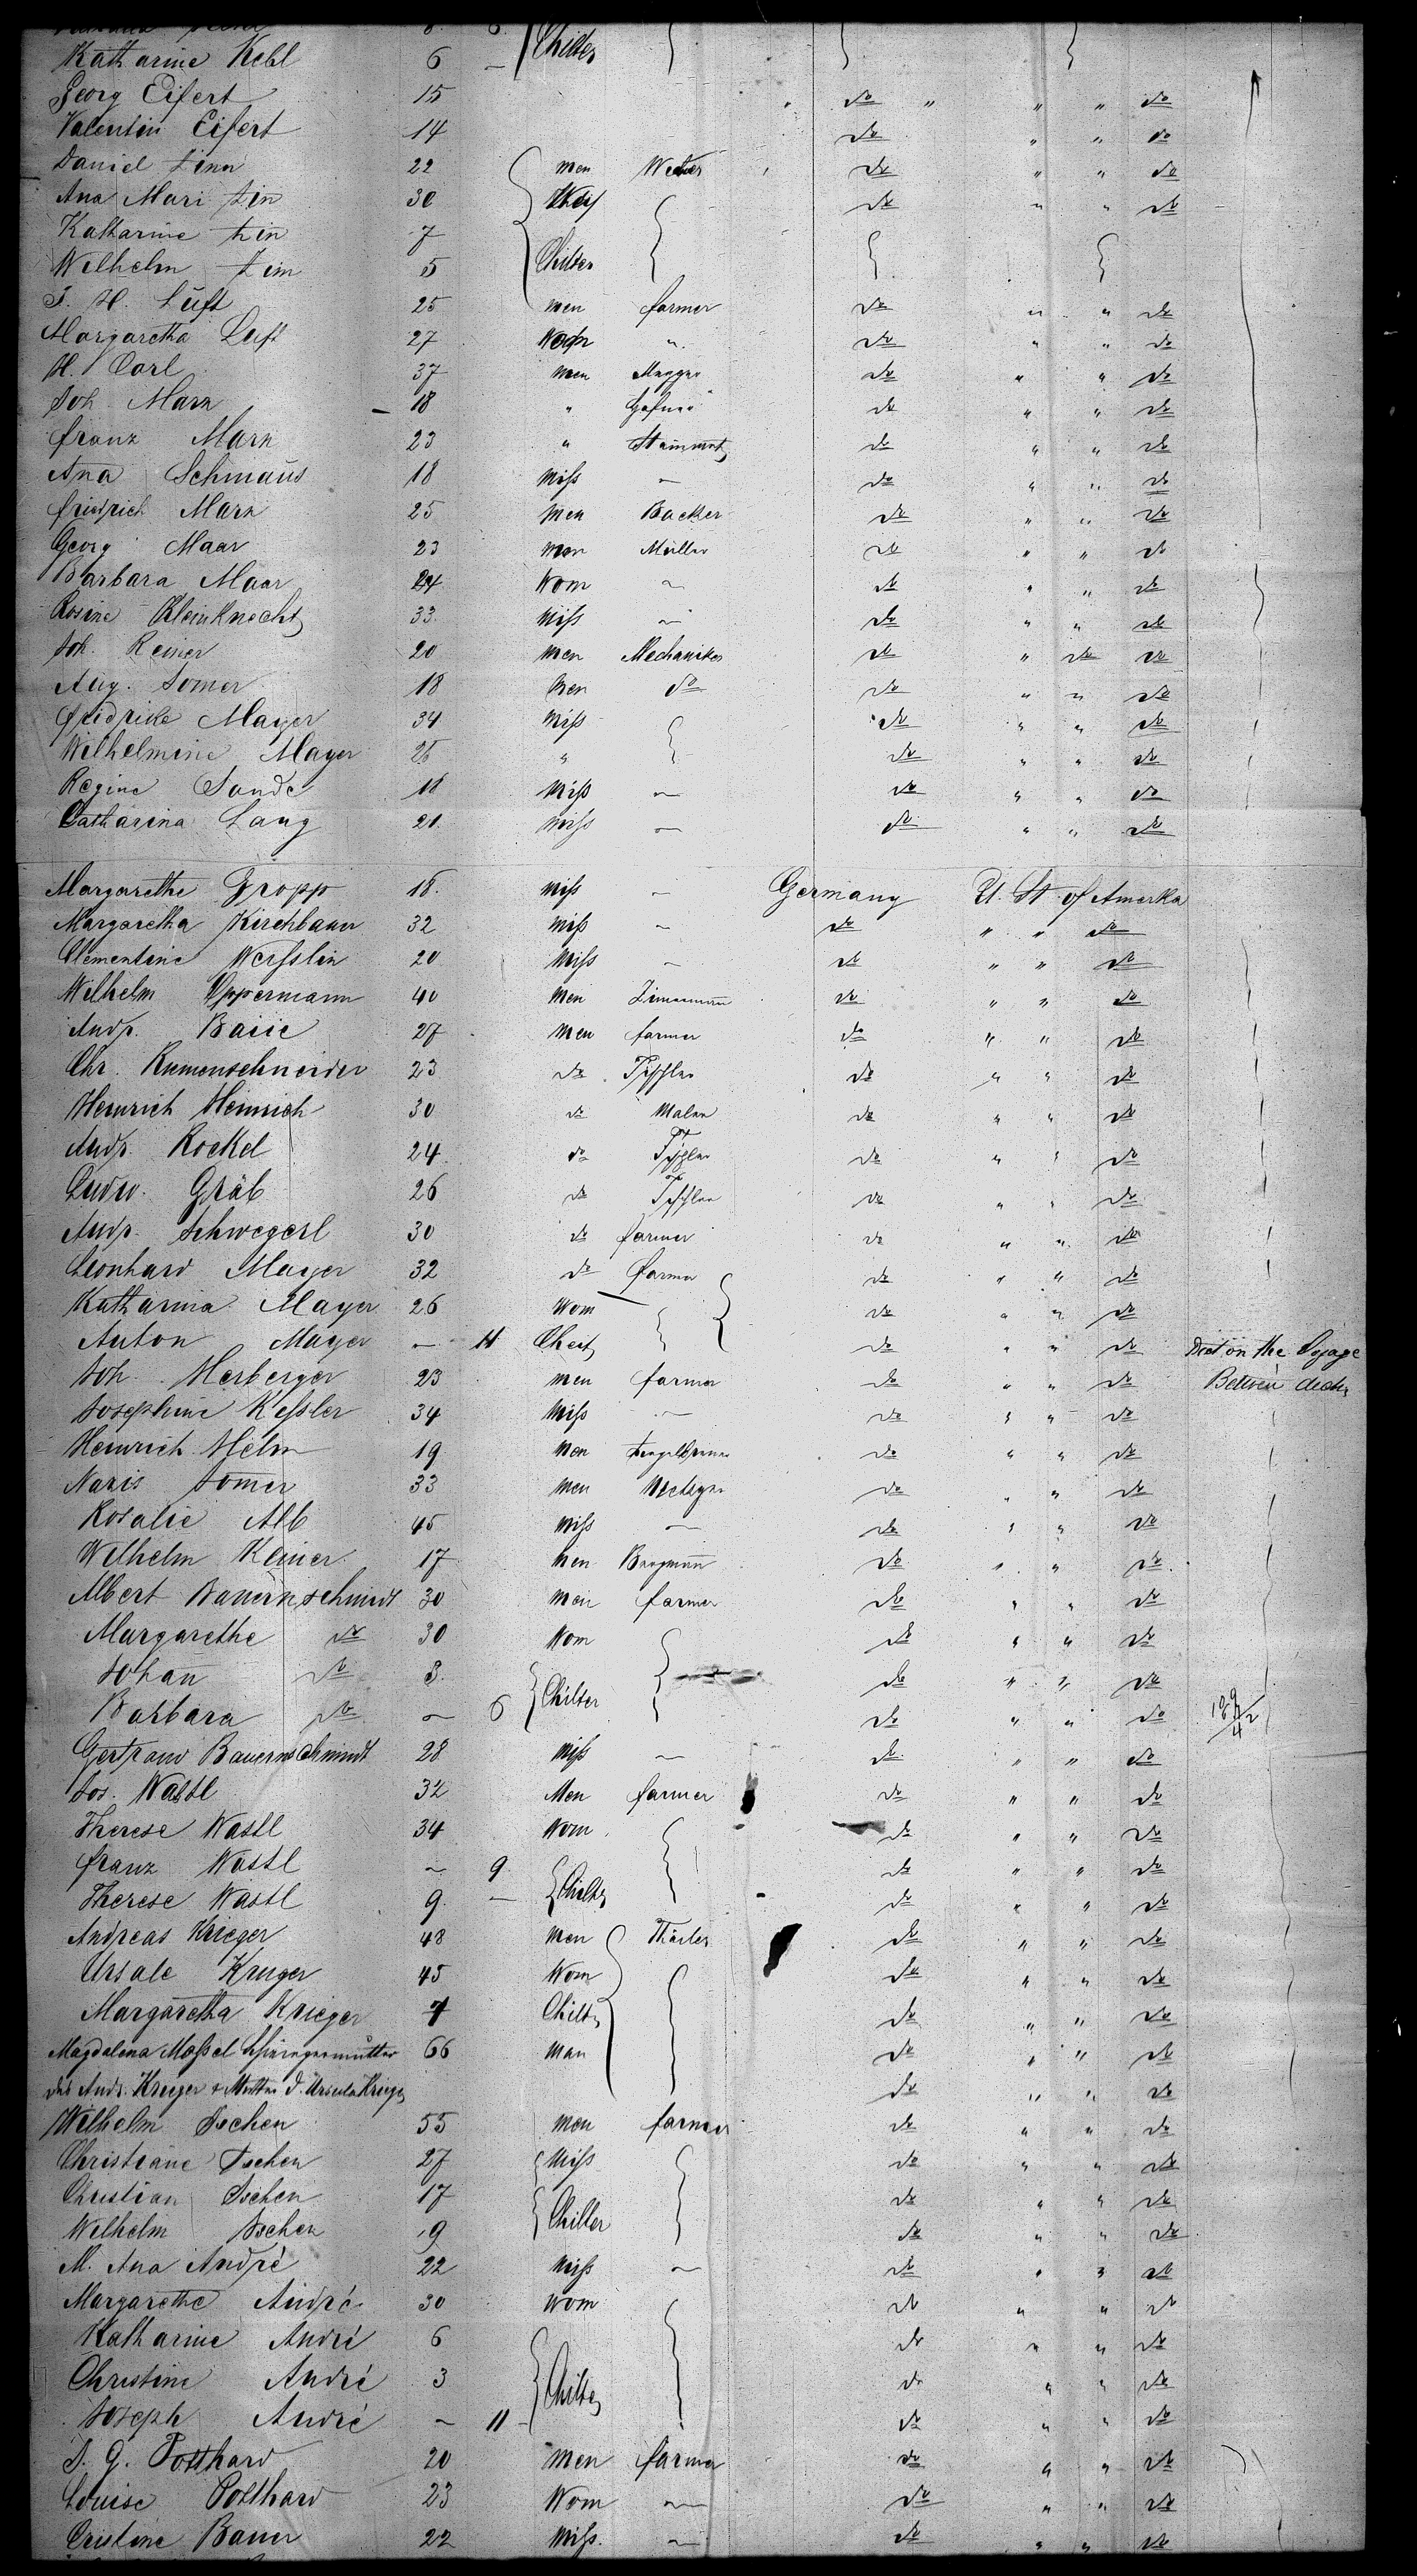 Katharine Kehl 6 — Childer
Georg Eifert 15 do " " " do
Valentin Eifert 14 do " " do
Daniel Linn 22 men do " " do
Ana Mari Lin 30 do " " do
Katharine Lin 7 Childer
Wilhelm Lim 5
J. H. Luft 25 men farmer do " " do
Margaretha Luft 27 " do " " do
H. Carl 37 men do " " do
Joh. Marx 18 " do " " do
franz Marx 23 " do " " do
Ana Schmaus 18 Miss — do " " do
friedrich Marx 25 men Backer do " " do
Georg Maar 23 men Müller do " " do
Barbara Maar 24 Wom ~ do " " do
Rosine Kleinknecht 33 Miss ~ do " " do
Joh. Reiner 20 men Mechaniker do " do do
Aug. Somer 18 men do do " " do
fridricke Mayer 34 Miss do " " do
Wilhelmine Mayer 25 " do " " do
Regine Sande 18 Miss ~ do " " do
Catharina Lang 21 Miss ~ do " " do
Margarethe Gropp 18 Miss ~ Germany U. St of Amerka
Margaretha Kirchbauer 32 Miss ~ do " " do
Clementine Werfslin 20 Miss ~ do " " do
Wilhelm Oppermann 40 men Zimermann do " " do
Andr. 27 men farmer do " " do
Chr. Rumenschneider 23 do Tischler do " " do
Heinrich Heinrich 30 do Maler do " " do
Andr. Rockel 24 do Tischler do " " do
Ludw. Gräb 26 do Tischler do " " do
Andr. Schwegerl 30 do farmer do " " do
Leonhard Mayer 32 do farmer do " " do
Katharina Mayer 26 Wom do " " do
Anton Mayer — 11 do " " do Died on the Voyage
Joh. Herberger 23 men farmer do " " do
Josephine Kessler 34 Miss ~ do " " do
Heinrich Helm 19 men do " " do
Somer 33 men do " " do
Rosalie Alb 45 Miss ~ do " " do
Wilhelm Keiner 17 men Bergmann do " " do
Albert Bauernschmidt 30 men farmer do " " do
Margarethe do 30 Wom do " " do
Johan do 3 Childer do " " do
Barbara do ~ 6 do " " do
Gertraud Bauernschmidt 28 Miss ~ do " " do
Jos. Wastl 32 Men farmer do " " do
Therese Wastl 34 Wom do " " do
franz Wastl ~ 9 do " " do
Therese Wastl 9 — Childer do " " do
Andreas Krieger 48 men do " " do
Ursale Kruger 45 Wom do " " do
Margaretha Krieger 7 Childer do " " do
Magdalena Mossel Schwiegermutter 66 Man do " " do
des Andr. Krieger & Mutter d. Ursula Krieger do " " do
Wilhelm Ischen 55 men farmer do " " do
Christiane Ischen 27 Miss do " " do
Christian Ischen 17 Childer do " " do
Wilhelm Ischen 9 do " " do
M. Ana André 22 Miss ~ do " " do
Margarethe André 30 Wom do " " do
Katharine André 6 do " " do
Christine André 3 Childer do " " do
Joseph André ~ 11 do " " do
J. G. Potthard 20 men farmer do " " do
Louise Potthard 23 Wom ~ do " " do
Cristine Bauer 22 Miss ~ do " " do